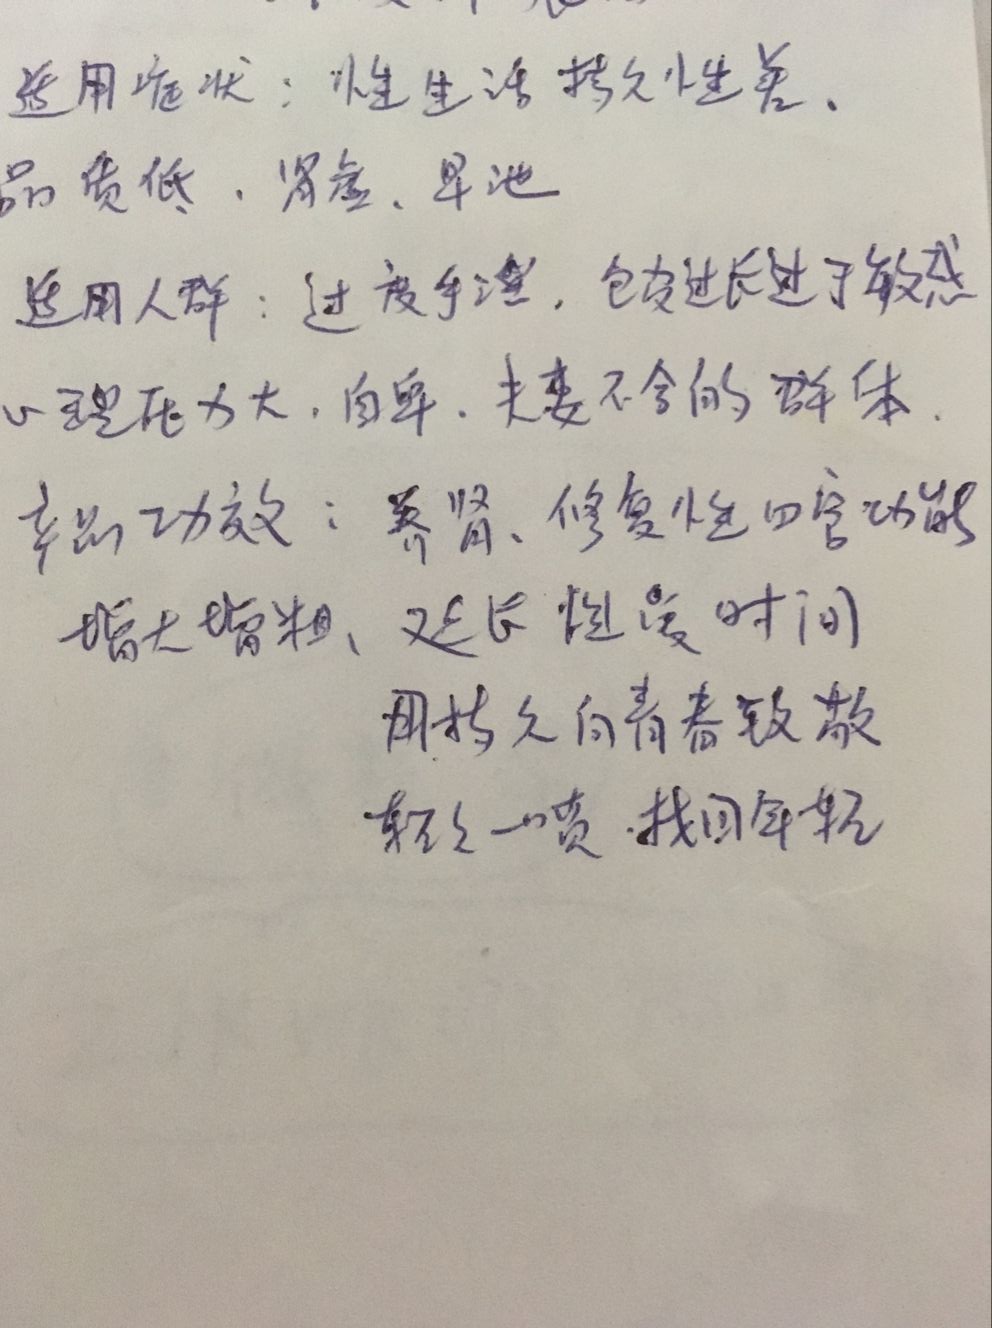 适用症状：性生活持久性差、
品质低、肾虚、早池
适用人群：过度手淫，包皮过长过于敏感
心理压力大，自卑，夫妻不合的群体.
产品功效：养肾、修复性器官功能
增大增粗、延长性爱时间
用持久向青春致敬
轻轻一喷，找回年轻